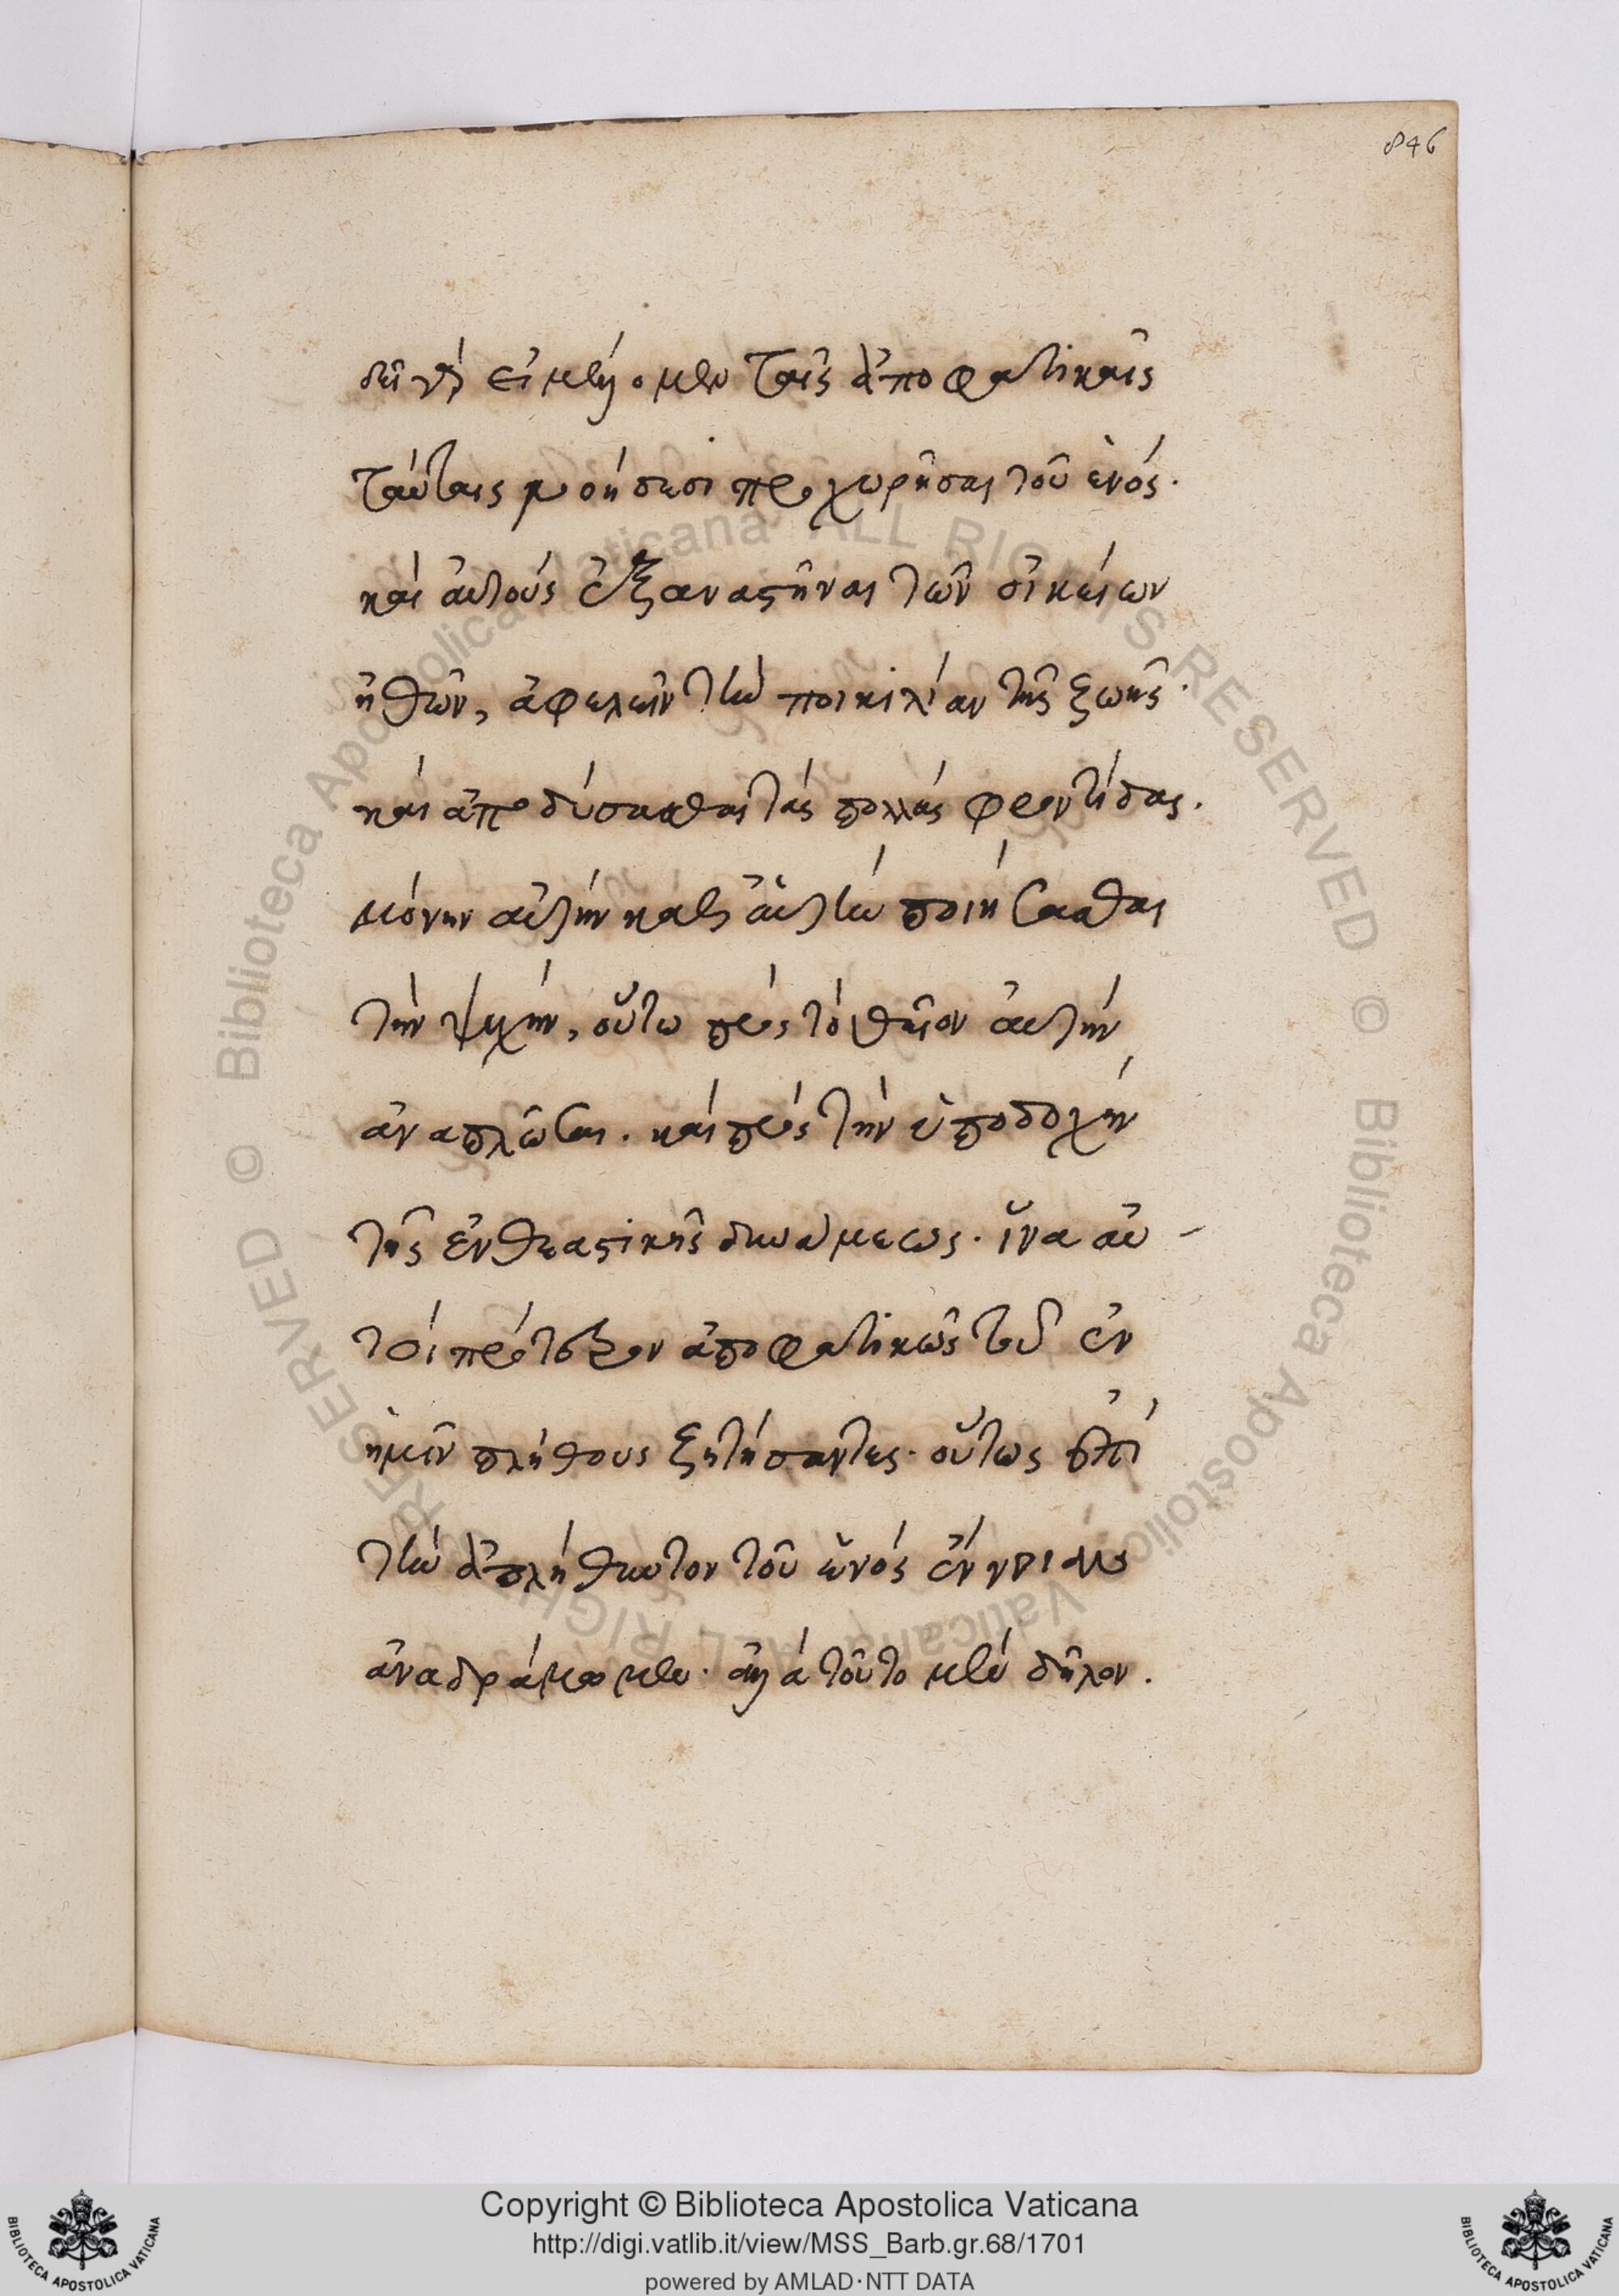 846
δεῖ γὰρ εἰ μέλλομεν ταῖς ἀποφατικαῖς
ταύταις νοήσεσι προχωρῆσαι τοῦ ἑνός·
καὶ αὐτοὺς ἐξαναστῆναι τῶν οἰκείων
ἠθῶν, ἀφελεῖν τὴν ποικιλίαν τῆς ζωῆς·
καὶ ἀποδύσασθαι τὰς πολλὰς φροντίδας.
μόνην αὐτὴν καθ' αὑτὴν ποιήσασθαι
τὴν ψυχήν, οὕτω πρὸς τὸ θεῖον αὐτὴν
ἀναπλῶσαι. καὶ πρὸς τὴν ὑποδοχὴν
τῆς ἐνθεαστικῆς δυνάμεως. ἵνα αὐ-
τοὶ πρότερον ἀποφατικῶς τοῦ ἐν
ἡμῖν πλήθους ζητήσαντες· οὕτως ἐπὶ
τὴν ἀπλήθυντον τοῦ ἑνὸς ἔννοιαν
ἀναδράμωμεν. ἀλλὰ τοῦτο μὲν δῆλον.
© Biblioteca Apostolica Vaticana ALL RIGHTS RESERVED
© Biblioteca Apostolica Vaticana ALL RIGHTS RESERVED
Copyright © Biblioteca Apostolica Vaticana
http://digi.vatlib.it/view/MSS_Barb.gr.68/1701
powered by AMLAD·NTT DATA
BIBLIOTECA APOSTOLICA VATICANA
BIBLIOTECA APOSTOLICA VATICANA